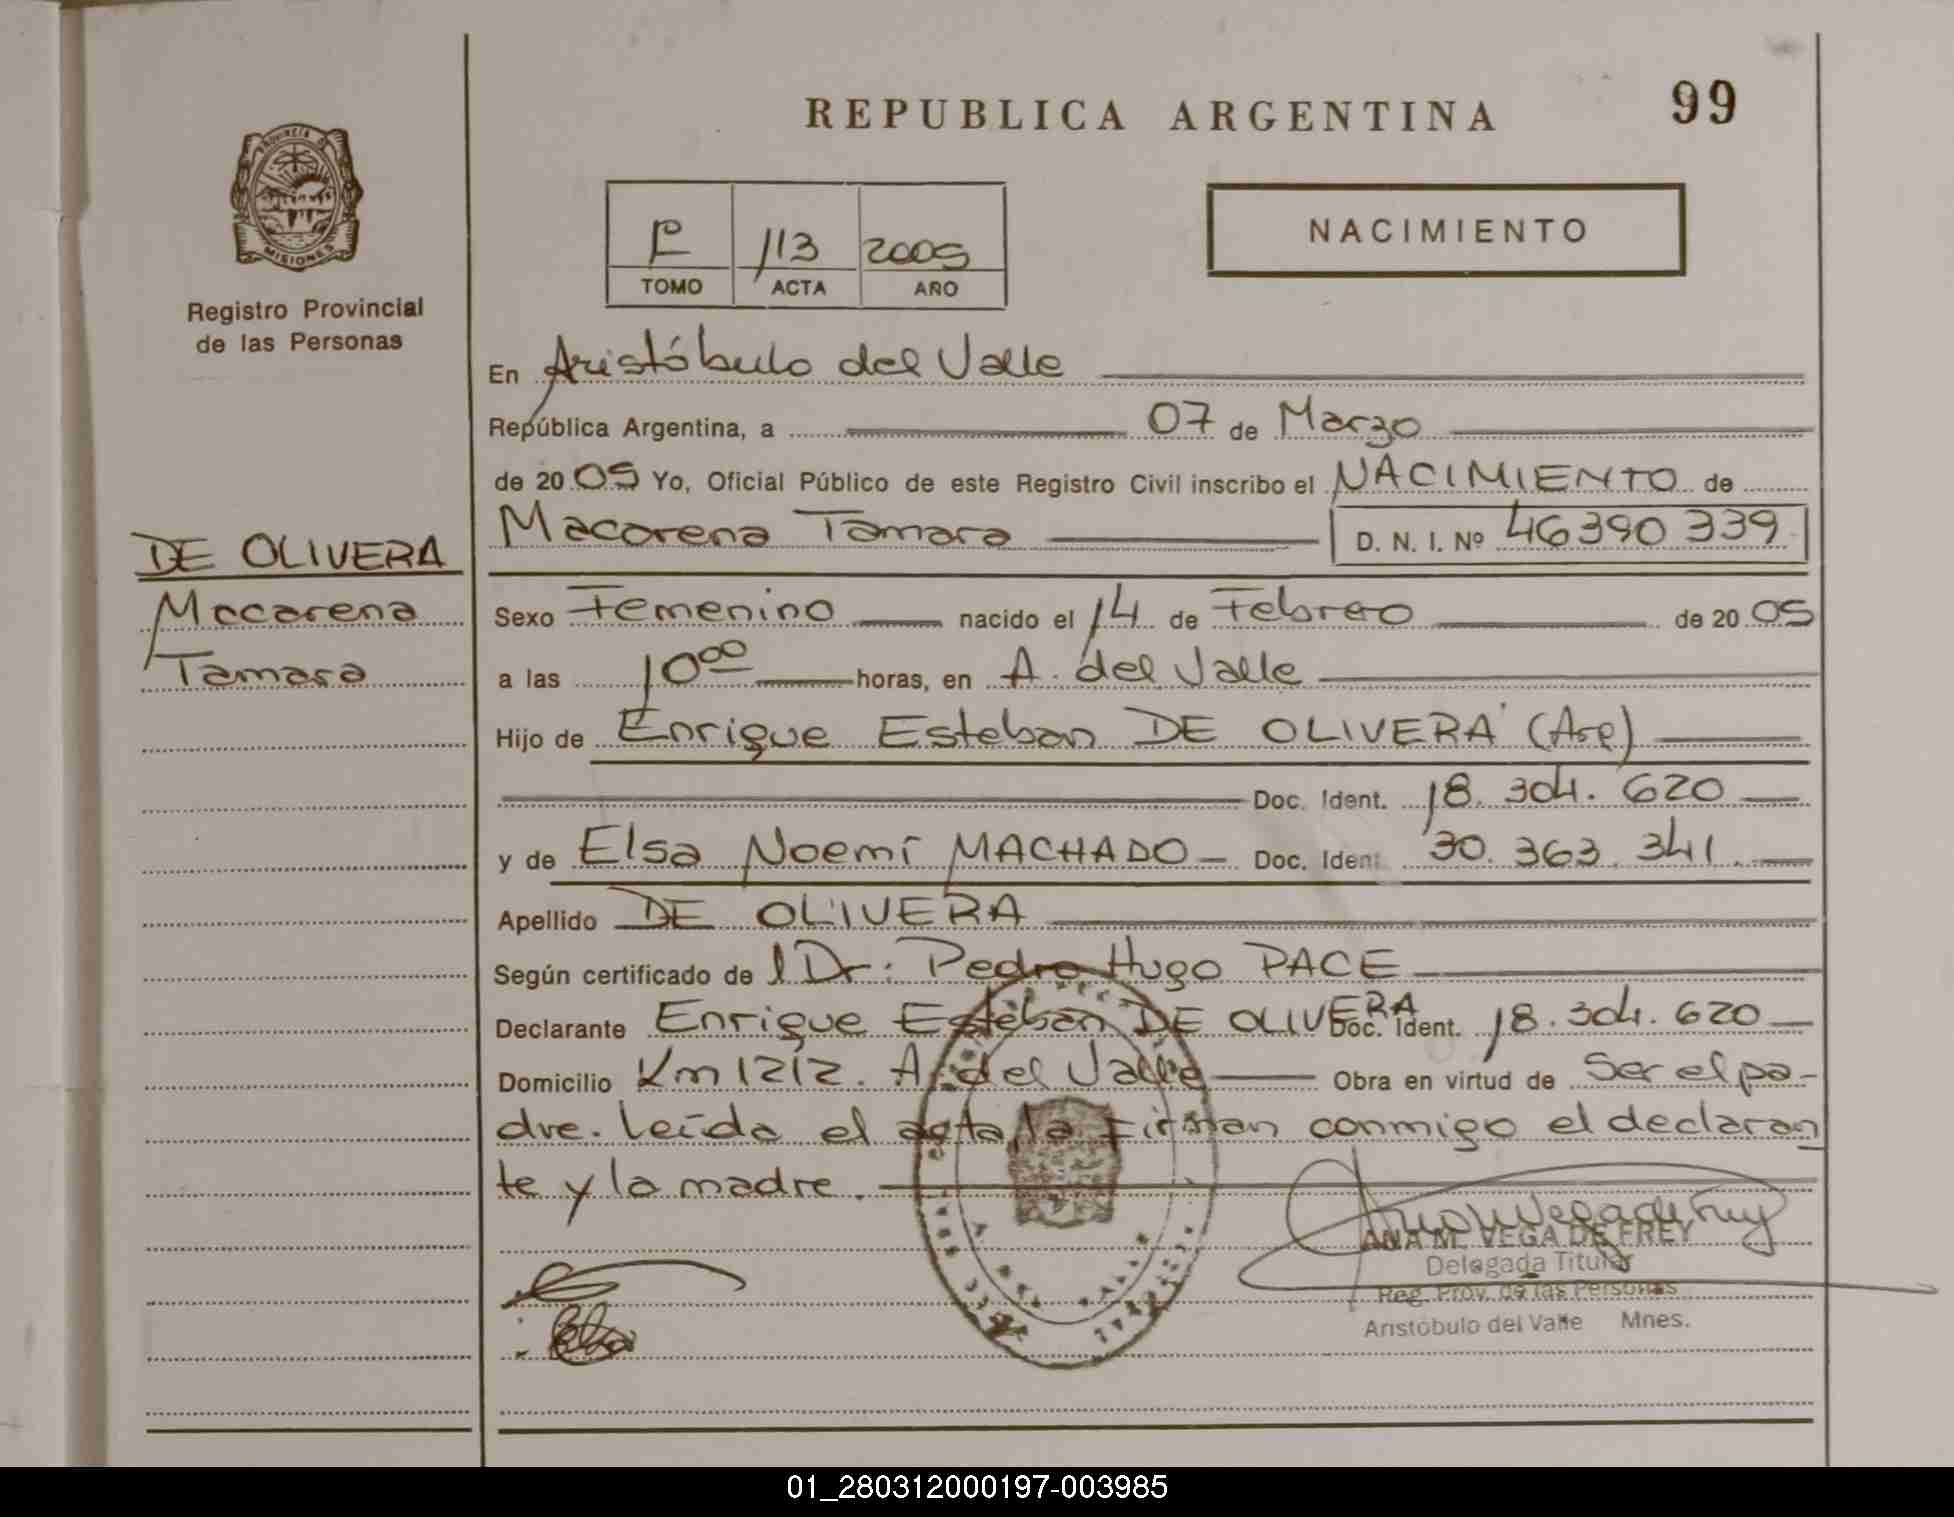 REPUBLICA ARGENTINA
99
PROVINCIA DE
MISIONES
Registro Provincial
de las Personas
113 2005
TOMO ACTA AÑO
NACIMIENTO
En Aristóbulo del Valle
República Argentina, a 07 de Marzo
de 2005 Yo, Oficial Público de este Registro Civil inscribo el NACIMIENTO de
Macarena Tamara D. N. I. Nº 46390 339
DE OLIVERA
Macarena
Tamara
Sexo Femenino nacido el 14 de Febrero de 2005
a las 10⁰⁰ horas, en A. del Valle
Hijo de Enrique Esteban DE OLIVERA (Arg)
Doc. Ident. 18.304.620
y de Elsa Noemí MACHADO Doc. Ident. 30.363.341.
Apellido DE OLIVERA
Según certificado del Dr: Pedro Hugo PACE
Declarante Enrique Esteban DE OLIVERA Doc. Ident. 18.304.620
Domicilio Km 1212. A. del Valle Obra en virtud de Ser el pa-
dre. Leída el acta, la firman conmigo el declaran
te y la madre.
ANA M. VEGA DE FREY
Delegada Titular
Reg. Prov. de las Personas
Aristóbulo del Valle Mnes.
01_280312000197-003985